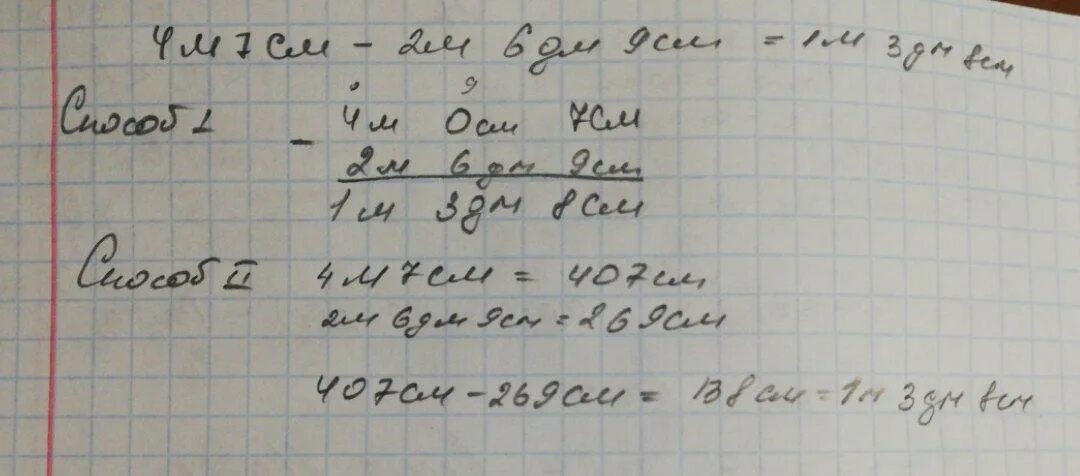 4м 7см - 2м 6дм 9см = 1м 3дм 8см
9
Способ I - 4м 0см 7см
2м 6дм 9см
1м 3дм 8см
Способ II 4м 7см = 407см
2м 6дм 9см = 269см
407см - 269см = 138см = 1м 3дм 8см